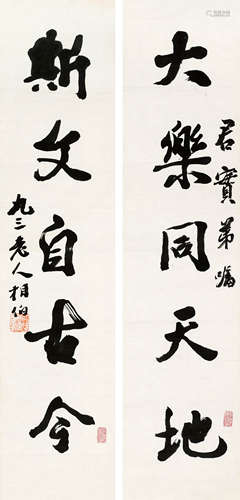 大樂同天地
君實弟嘱
斯文自古今
九三老人相伯